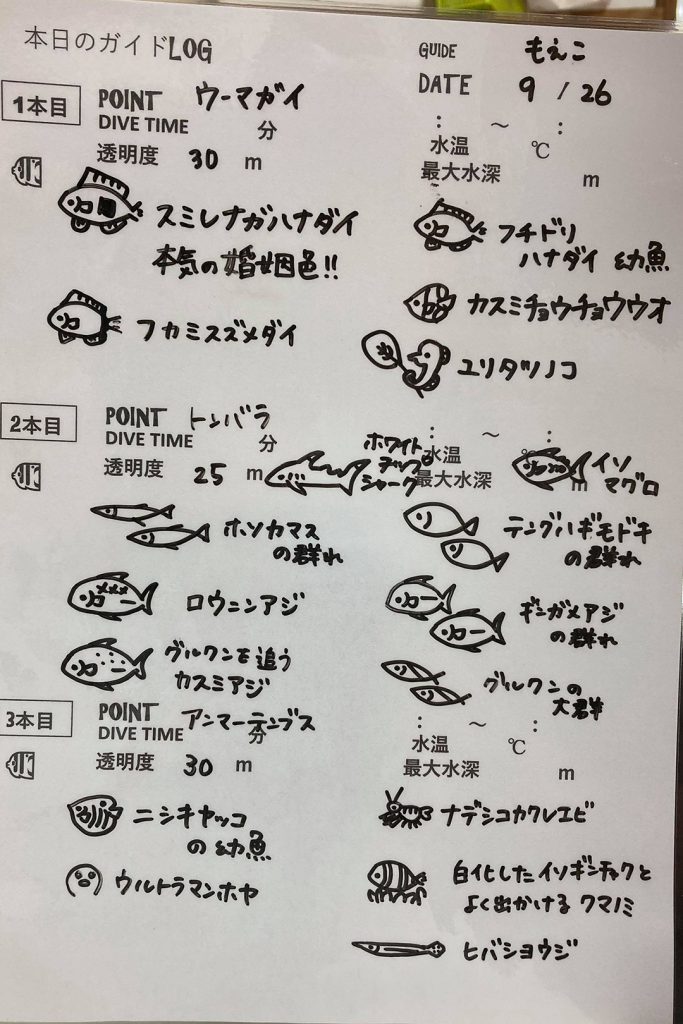 本日のガイドLOG
GUIDE もえこ
DATE 9 / 26
1本目
POINT ウーマガイ
DIVE TIME 分
: ～ :
透明度 30 m
水温 ℃
最大水深 m
スミレナガハナダイ
本気の婚姻色!!
フチドリ
ハナダイ 幼魚
カスミチョウチョウウオ
フカミスズメダイ
ユリタツノコ
2本目
POINT トンバラ
DIVE TIME 分
: ～ :
透明度 25 m
水温 ℃
最大水深 m
ホワイト
チップ
シャーク
イソ
マグロ
ホソカマス
の群れ
テングハギモドキ
の群れ
ロウニンアジ
ギンガメアジ
の群れ
グルクンを追う
カスミアジ
グルクンの
大群
3本目
POINT アンマーテンブス
DIVE TIME 分
: ～ :
透明度 30 m
水温 ℃
最大水深 m
ニシキヤッコ
の幼魚
ナデシコカクレエビ
ウルトラマンホヤ
白化したイソギンチャクと
よく出かける クマノミ
ヒバシヨウジ